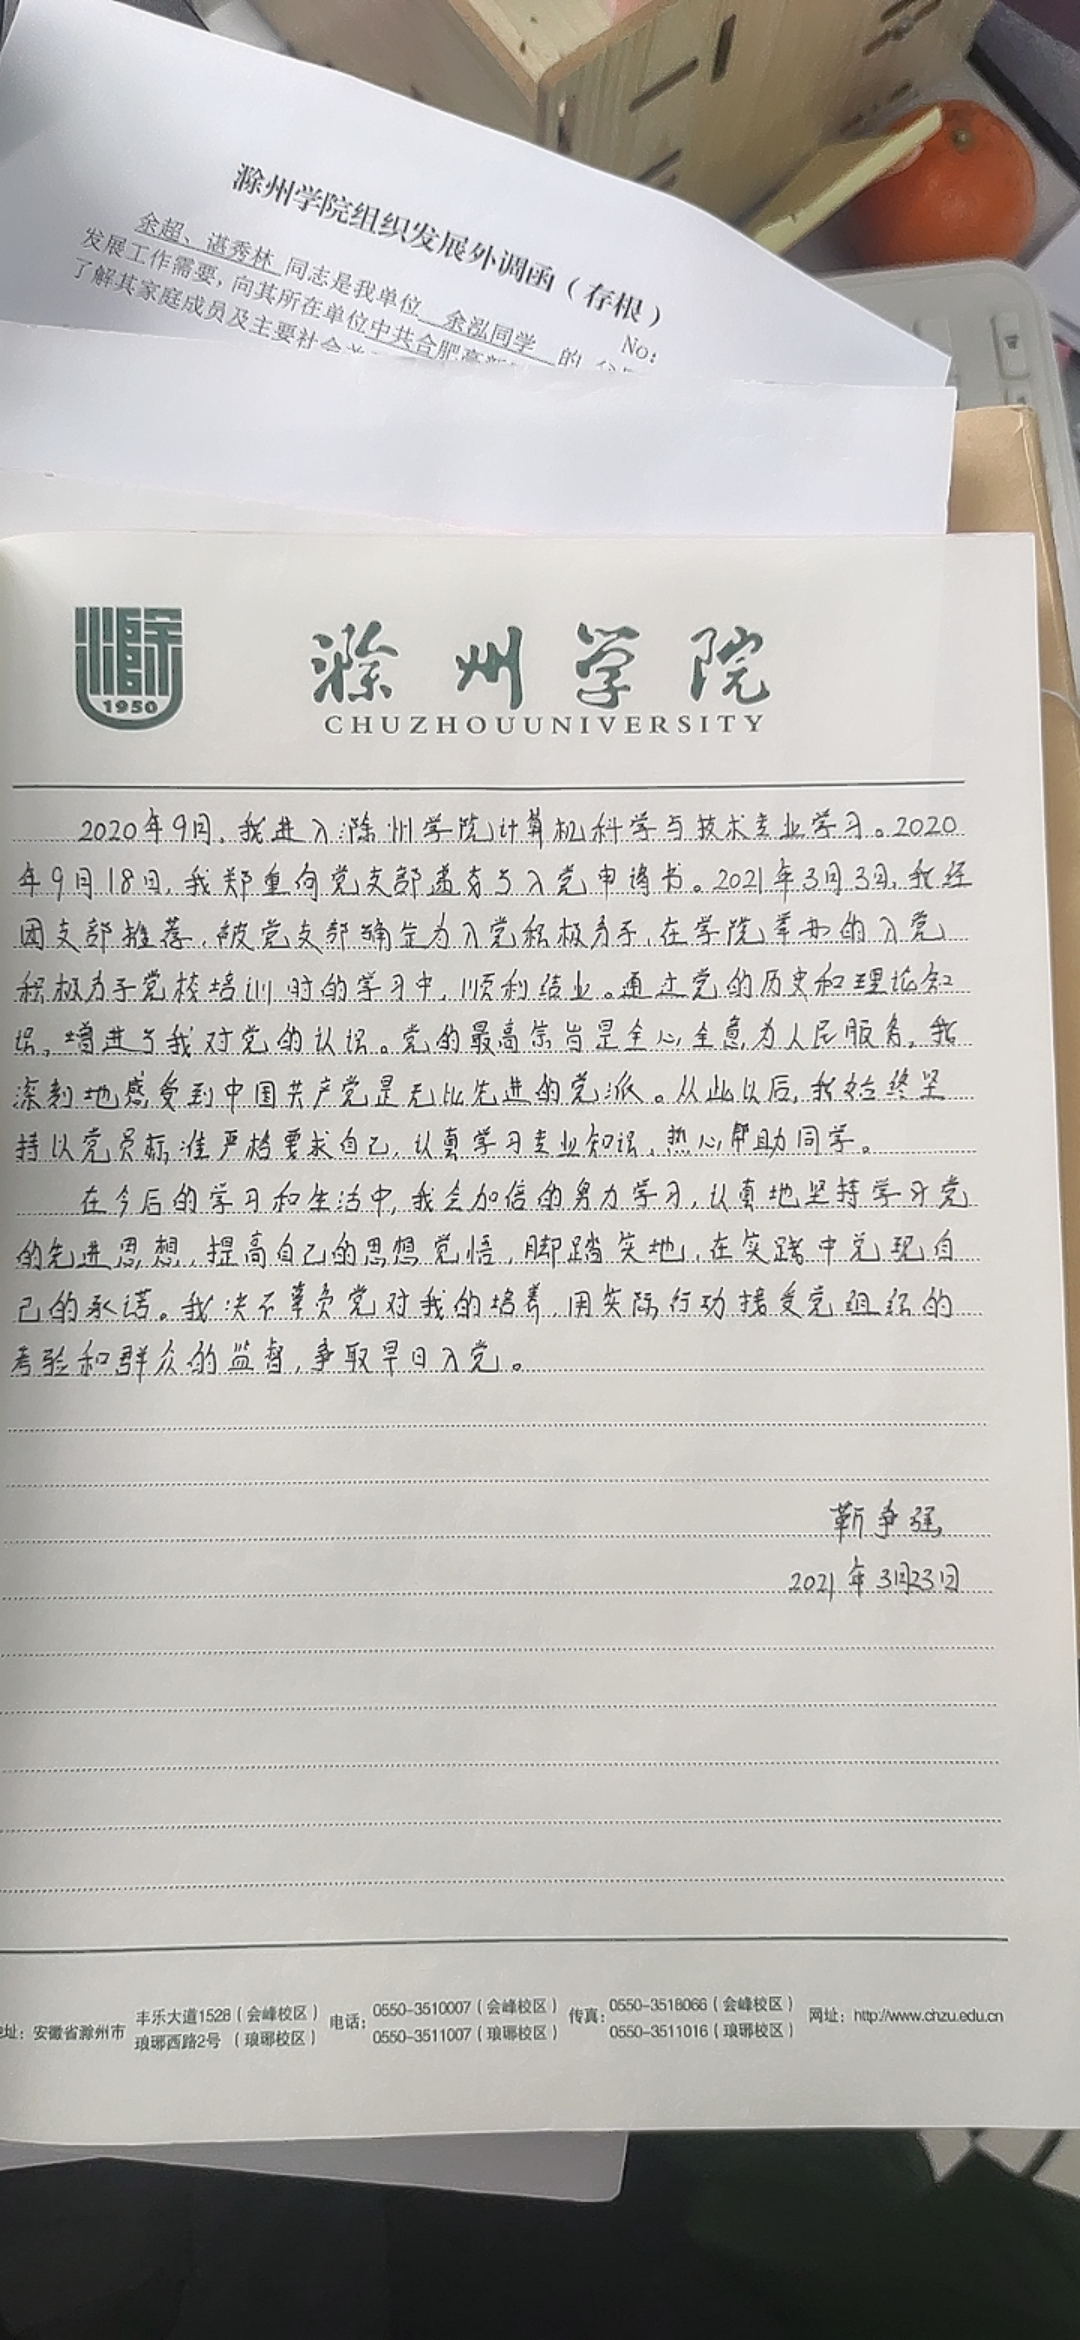 滁州学院组织发展外调函（存根）
No:
余超、谌秀林 同志是我单位 余泓同学 的
发展工作需要，向其所在单位中共合肥高新
了解其家庭成员及主要社会关
滁
1950
滁州学院
CHUZHOUUNIVERSITY
2020年9月，我进入滁州学院计算机科学与技术专业学习。2020
年9月18日，我郑重向党支部递交了入党申请书。2021年3月3日，我经
团支部推荐，被党支部确定为入党积极分子，在学院举办的入党
积极分子党校培训时的学习中，顺利结业。通过党的历史和理论知
识，增进了我对党的认识。党的最高宗旨是全心全意为人民服务，我
深刻地感受到中国共产党是无比先进的党派。从此以后，我始终坚
持以党员标准严格要求自己，认真学习专业知识，热心帮助同学。
在今后的学习和生活中，我会加倍的努力学习，认真地坚持学习党
的先进思想，提高自己的思想觉悟，脚踏实地，在实践中兑现自
己的承诺。我决不辜负党对我的培养，用实际行动接受党组织的
考验和群众的监督，争取早日入党。
靳争强
2021年3月23日
地址：安徽省滁州市 丰乐大道1528（会峰校区） 电话：0550-3510007（会峰校区） 传真：0550-3518066（会峰校区） 网址：http://www.chzu.edu.cn
琅琊西路2号（琅琊校区） 0550-3511007（琅琊校区） 0550-3511016（琅琊校区）